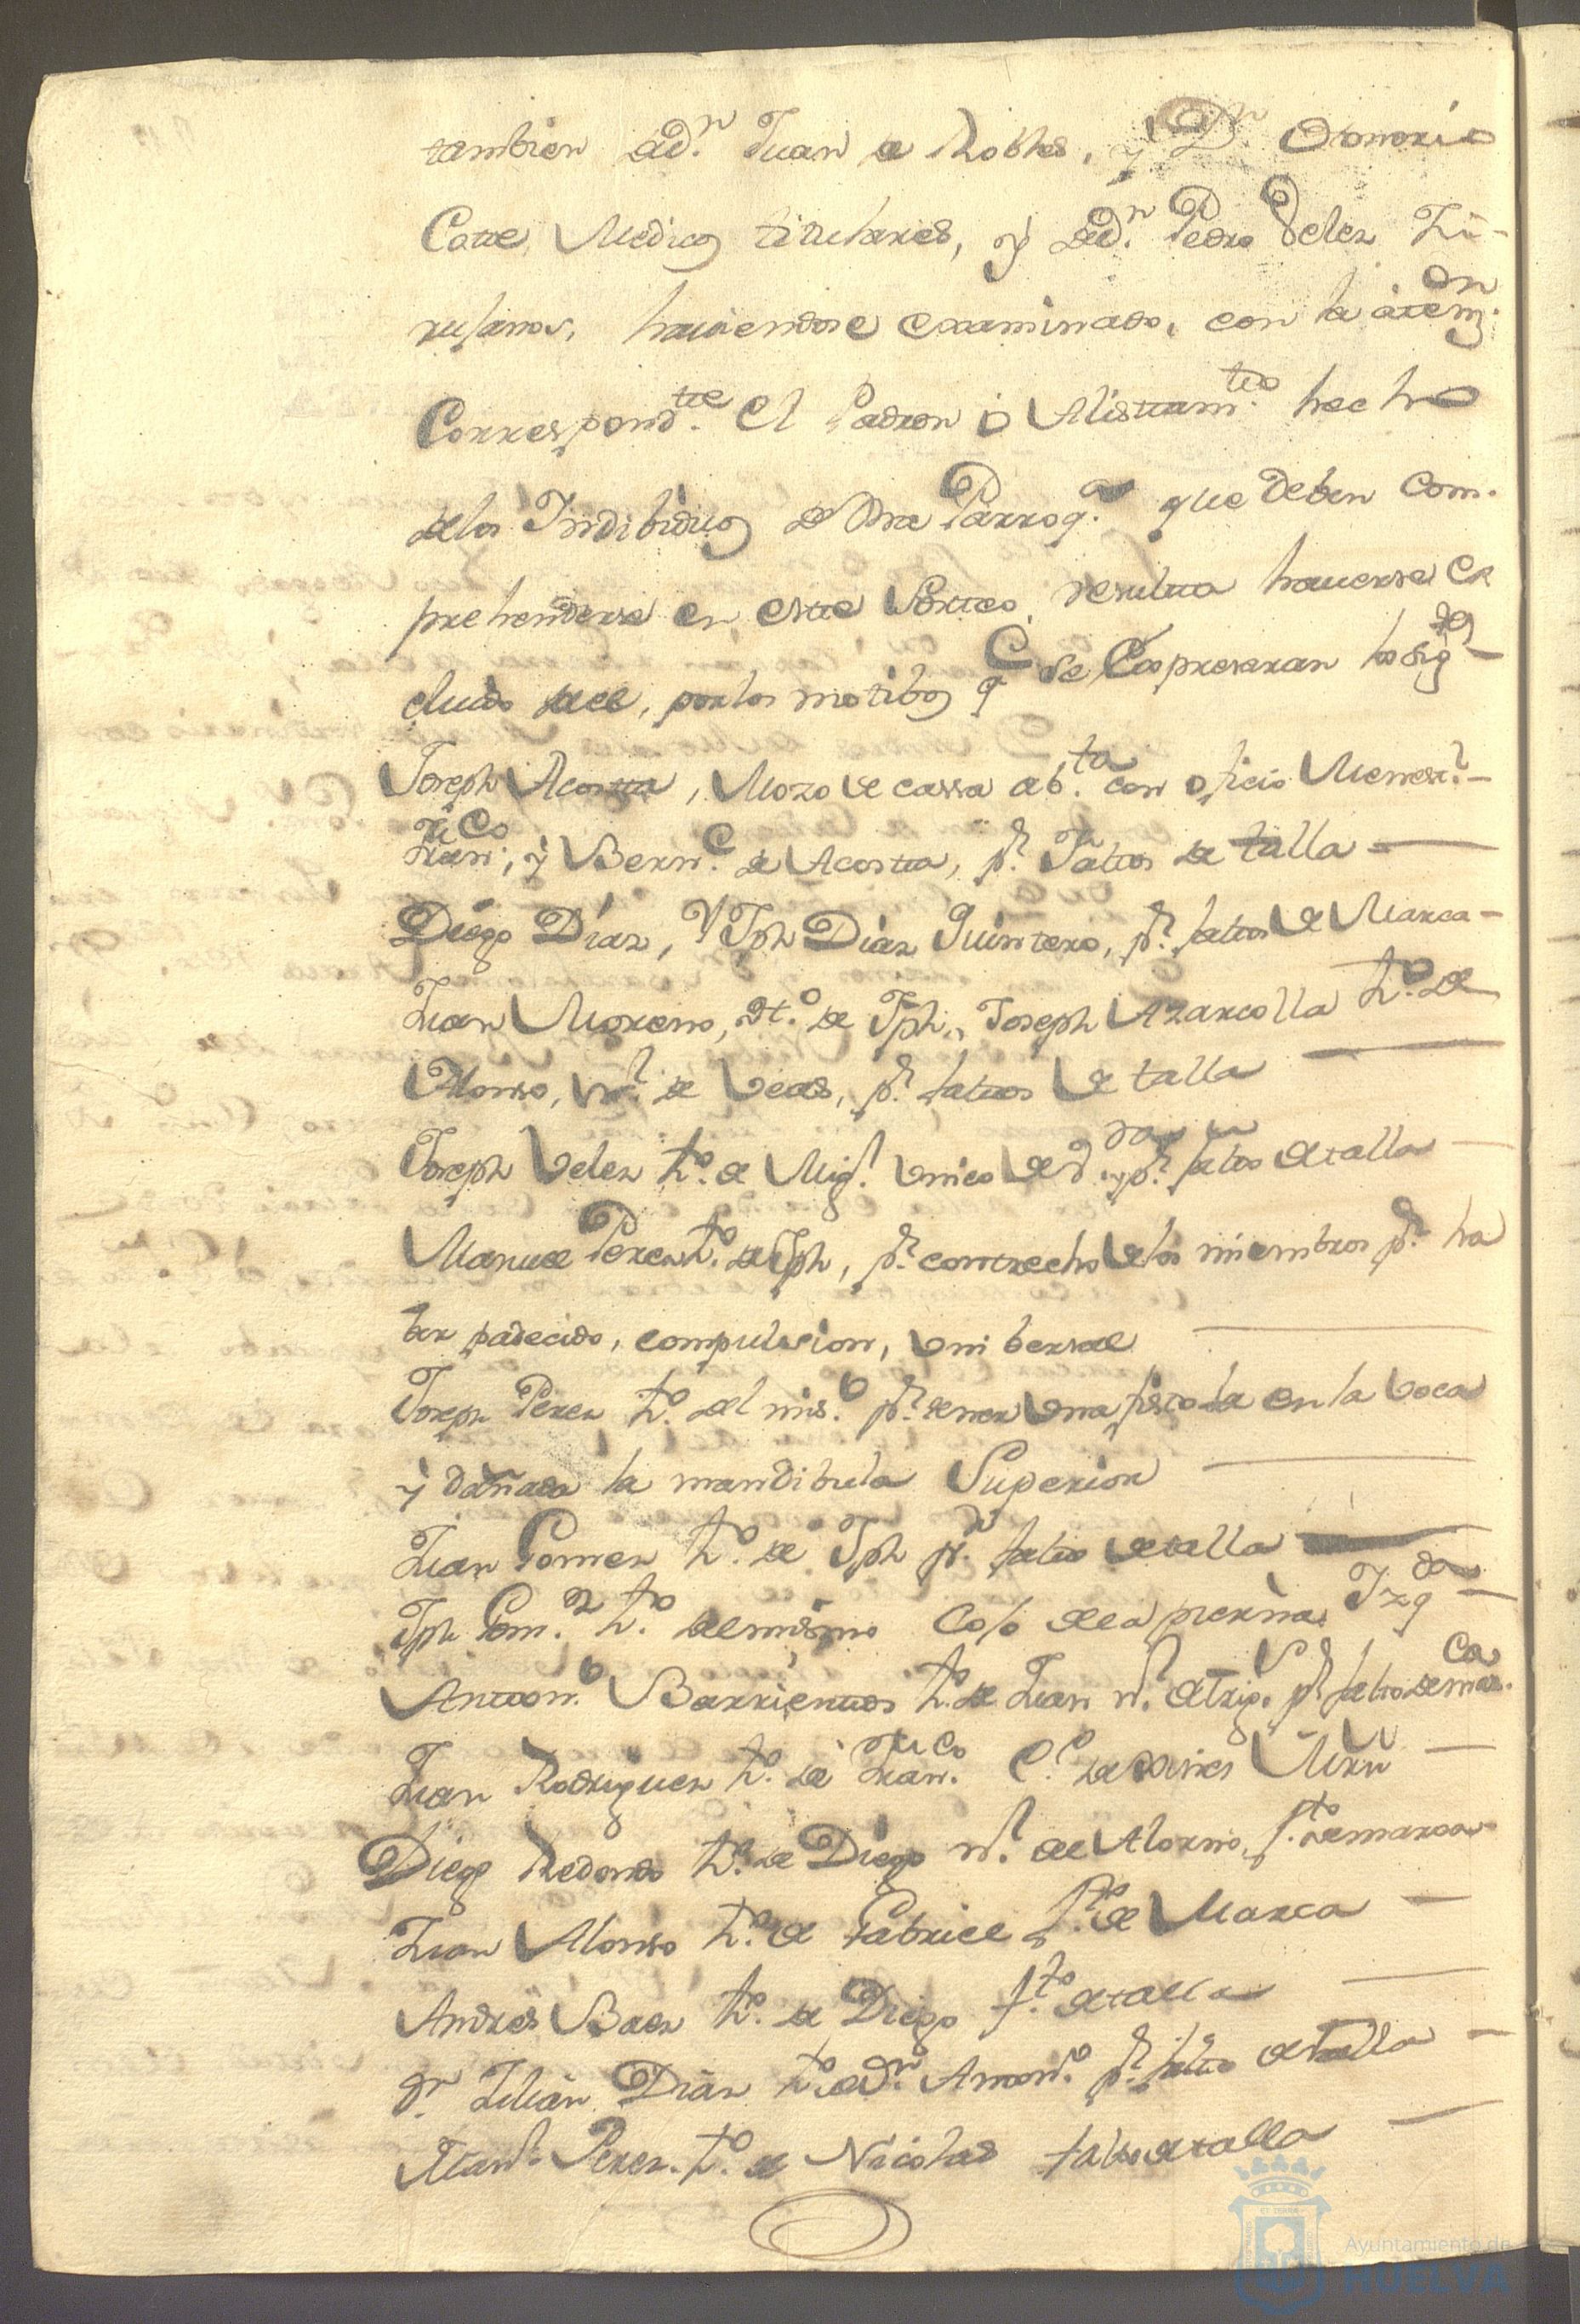 tambien ad.n Juan de Robles, y D.n Onorio
Catte Medicos titulares, y ad.n Pedro Velez Zi-
rujanos, haviendose examinado, con la atenz.on
Correspond.tte el Padron ò Alistam.tto hecho
delos Indibiduos de dha Parroq.a que deben Com-
prehenderse en estte Sortteo, resultta haverse ex
cluido de el, por los motibos q.e se Expresaran los sig.tes
Joseph Acostta, Mozo de cassa ab.ta con oficio Menestr.l
Fran.co, y Bern.e de Acostta, p.r faltos de talla
Diego Diaz, Y Jph Diaz Quintero, p.r faltos de Marca
Juan Moreno, h.o de Jph, Joseph Azarcolla h.o de
Alonso, n.l de Veas, p.r faltos de talla
Joseph Velez h.o de Mig.l Unico de v.da y p.r falto de talla
Manuel Perez h.o de Jph, p.r contrecho de los miembros p.r ha
ber padecido, compulsion, Unibersal
Joseph Perez h.o del mis.o p.r tener Una fistola en la Voca
y dañada la mandibula Superior
Juan Gomez h.o de Jph p.r falto de talla
Jph Gom.z h.o del mismo Cojo de la pierna Izq.da
Antton.o Barrienttos h.o de Juan n.l de Trig.s p.r falto de mar.ca
Juan Rodriguez h.o de Fran.co
Diego Redondo h.o de Diego n.l de Alosno, f.to de marca
Juan Alonso h.o de Gabriel f.to de Marca
Andres Baez h.o de Diego f.to de talla
D.n Julian Diaz h.o de D.n Anton.o p.r falto de talla
Man.l Perez h.o de Nicolas falto de talla
Ayuntamiento de
HUELVA